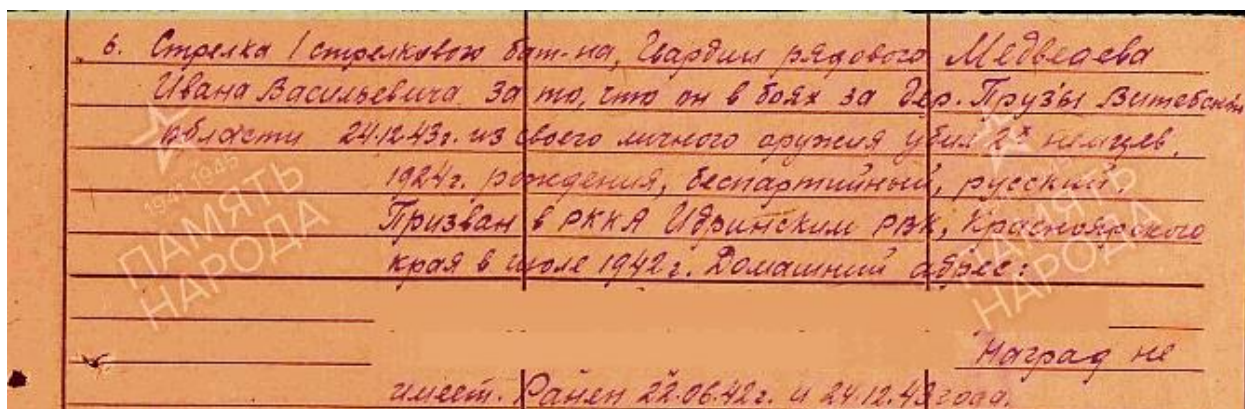 6. Стрелка 1 стрелкового бат-на, Гвардии рядового Медведева
Ивана Васильевича за то, что он в боях за дер. Прузы Витебской
области 24.12.43г. из своего личного оружия убил 2х немцев.
1924г. рождения, беспартийный, русский.
Призван в РККА Идринским РВК, Красноярского
края в июле 1942г. Домашний адрес:
Наград не
имеет. Ранен 22.06.42г. и 24.12.43 года.
1941 1945
ПАМЯТЬ
НАРОДА
ПАМЯТЬ
НАРОДА